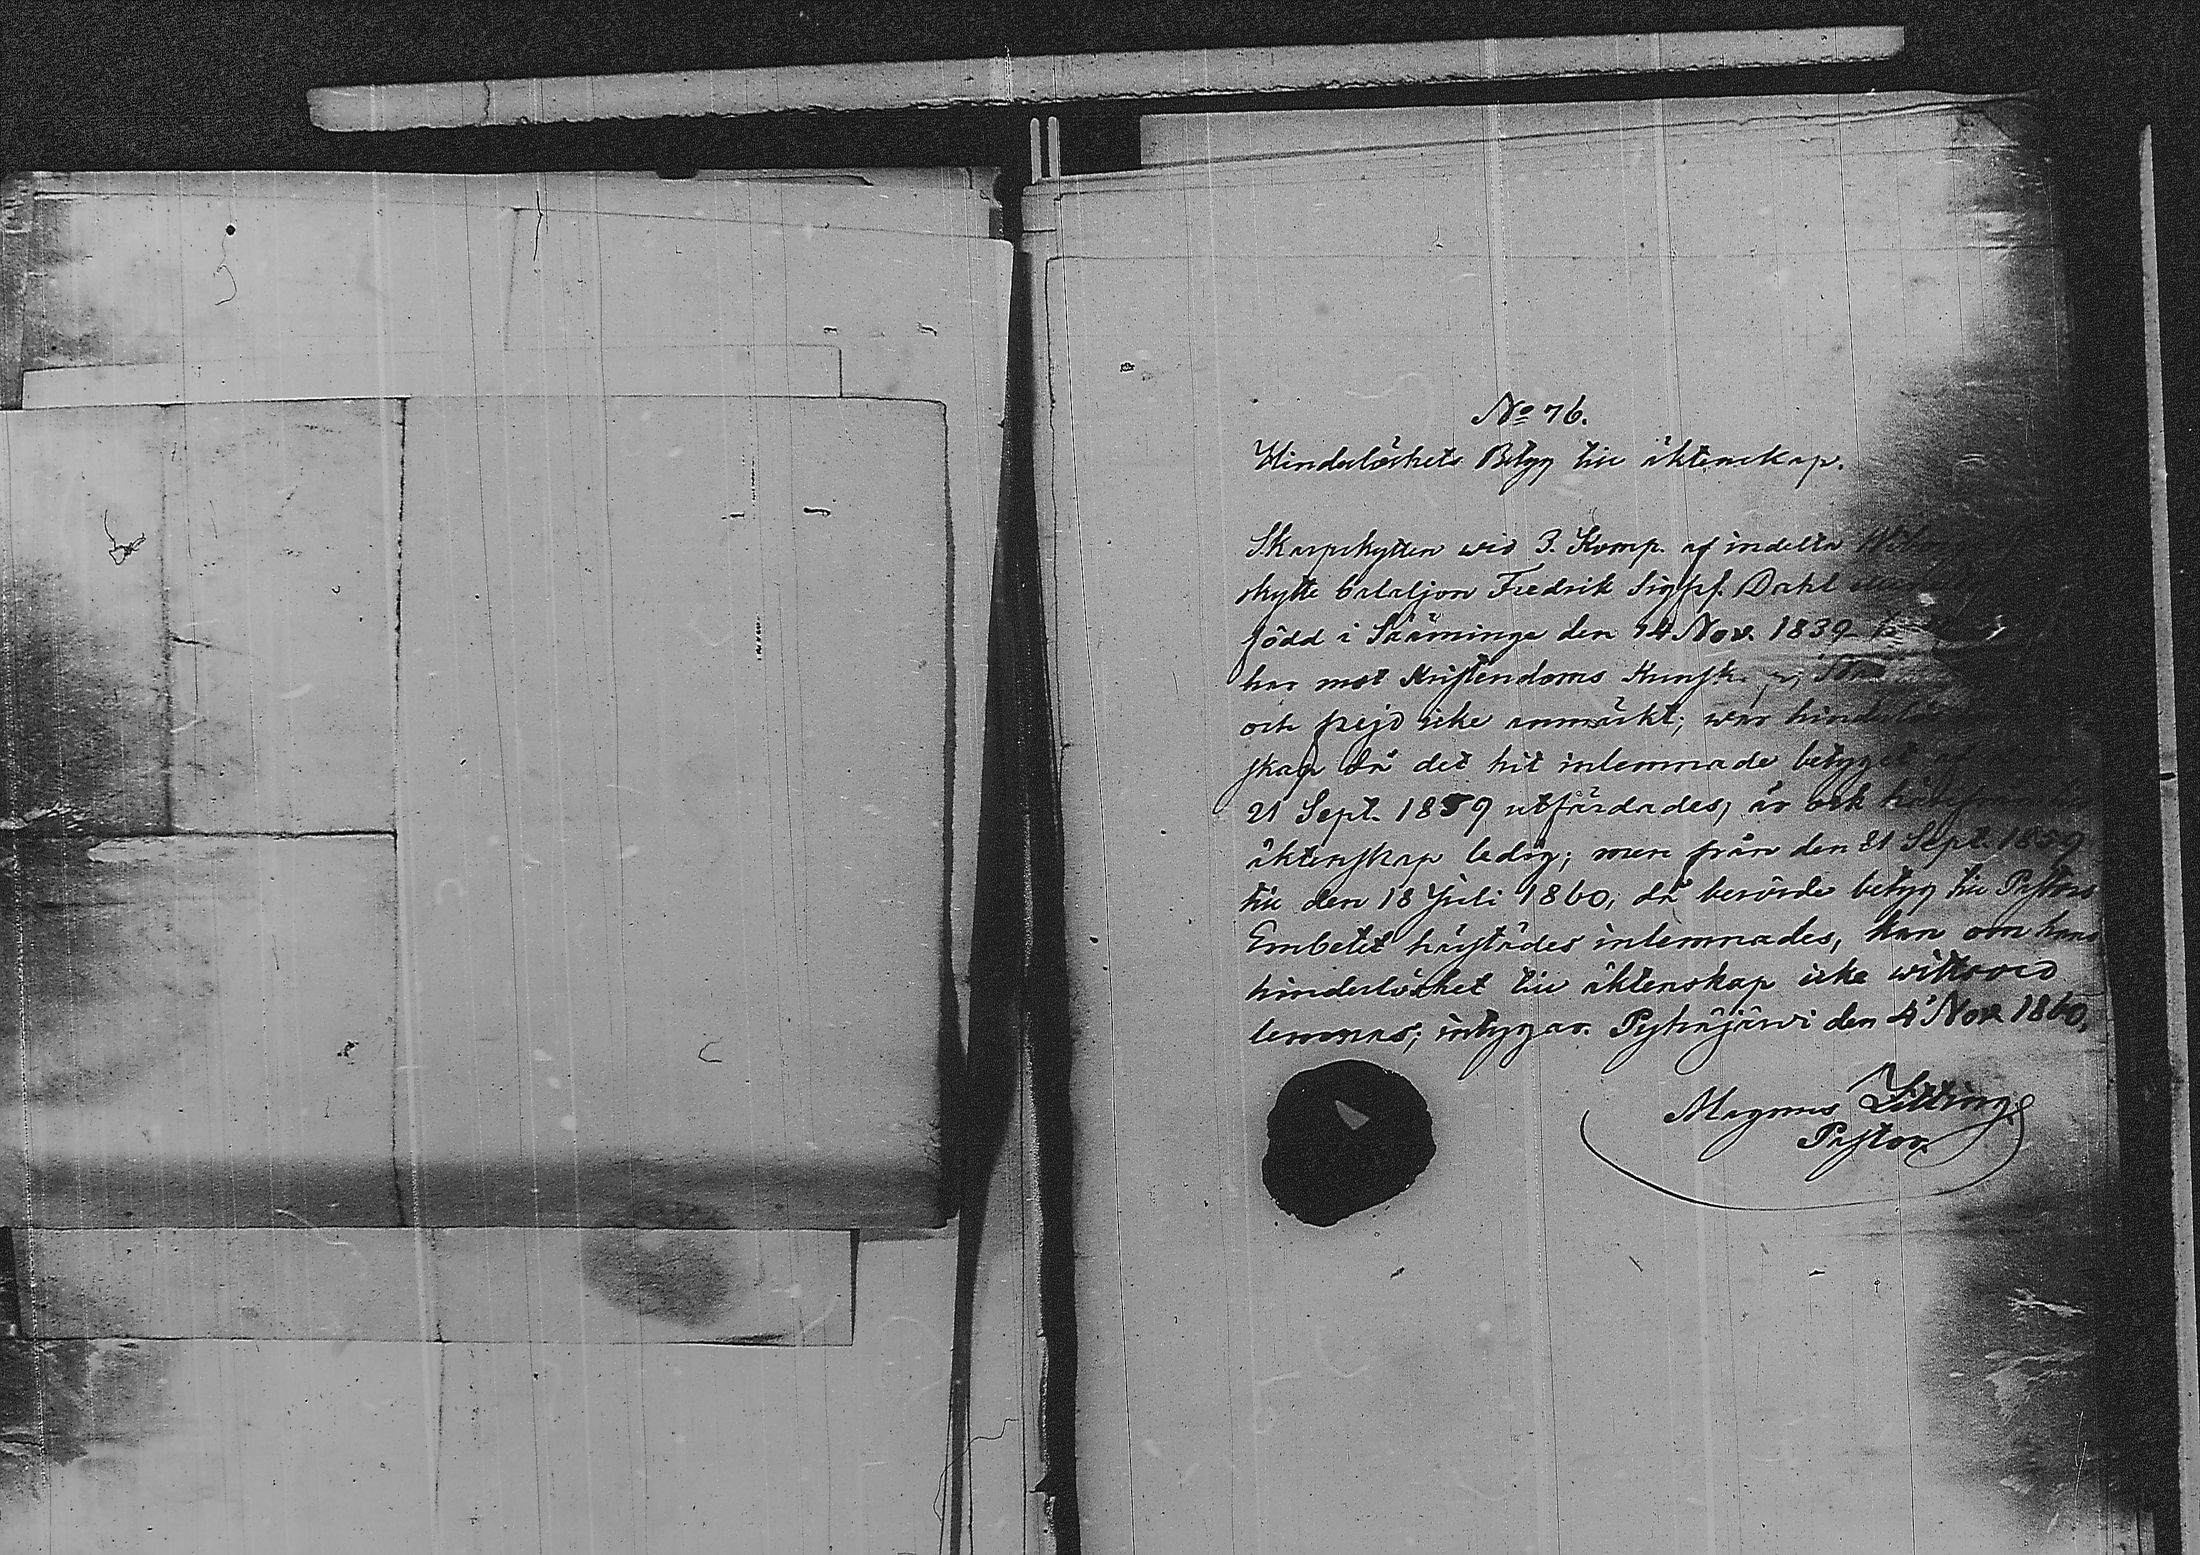 No 76.
Hinderlöshets Betyg till äktenskap.
Skarpskytten wid 3. Komp. af indelta
skytte bataljon Fredrik Sigfr. Dahl
född i Sääminge den 14 Nov. 1839
har mot Kristendoms Kunsk.
och frejd icke anmärkt; war
skap då det hit inlemnade betyget
21 Sept. 1859 utfärdades, är ock
äktenskap ledig; men från den 21 Sept. 1859
till den 18 Juli 1860, då berörde betyg till Pastors
Embetet härstädes inlemnades, kan om hans
hinderlöshet till äktenskap icke witsord
lemnas; intygar. Pyhäjärwi den 4 Nov. 1860.
Magnus
Pastor